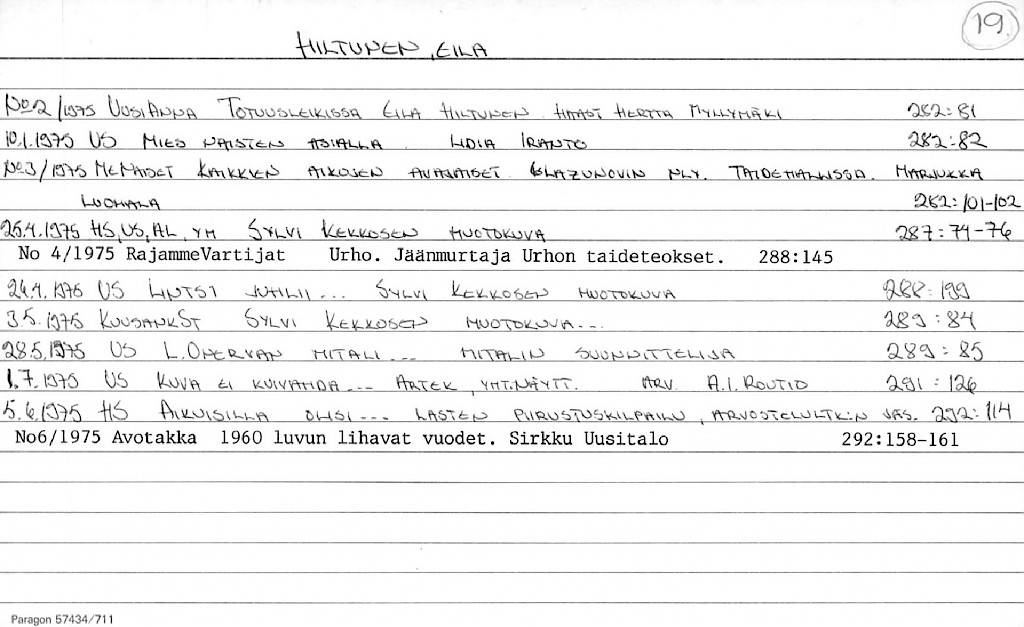 19.
HILTUNEN, EILA
No 2/1975 UUSI ANNA TOTUUSLEIKISSÄ EILA HILTUNEN. HAAST HERTTA MYLLYMÄKI 282:81
10.1.1975 US MIES NAISTEN ASIALLA. LIDIA IRANTO 282:82
No 3/1975 ME NAISET KAIKKIEN AIKOJEN AVAJAISET. GLAZUNOVIN NLY. TAIDEHALLISSA. MARJUKKA
LUOMALA 282:101-102
25.4.1975 HS, US, AL, YM SYLVI KEKKOSEN MUOTOKUVA 287:74-76
No 4/1975 RajammeVartijat Urho. Jäänmurtaja Urhon taideteokset. 288:145
24.4.1975 US LINTSI JUHLII... SYLVI KEKKOSEN MUOTOKUVA 288:199
3.5.1975 KUUSANKST SYLVI KEKKOSEN MUOTOKUVA... 289:84
28.5.1975 US L. ONERVAN MITALI... MITALIN SUUNNITTELIJA 289:85
1.7.1975 US KUVA EI KUIVAHDA... ARTEK, YHT.NÄYTT. ARV. A.I. ROUTIO 291:126
5.6.1975 HS AIKUISILLA OLISI... LASTEN PIIRUSTUSKILPAILU, ARVOSTELULTK:N JÄS. 292:114
No6/1975 Avotakka 1960 luvun lihavat vuodet. Sirkku Uusitalo 292:158-161
Paragon 57434/711